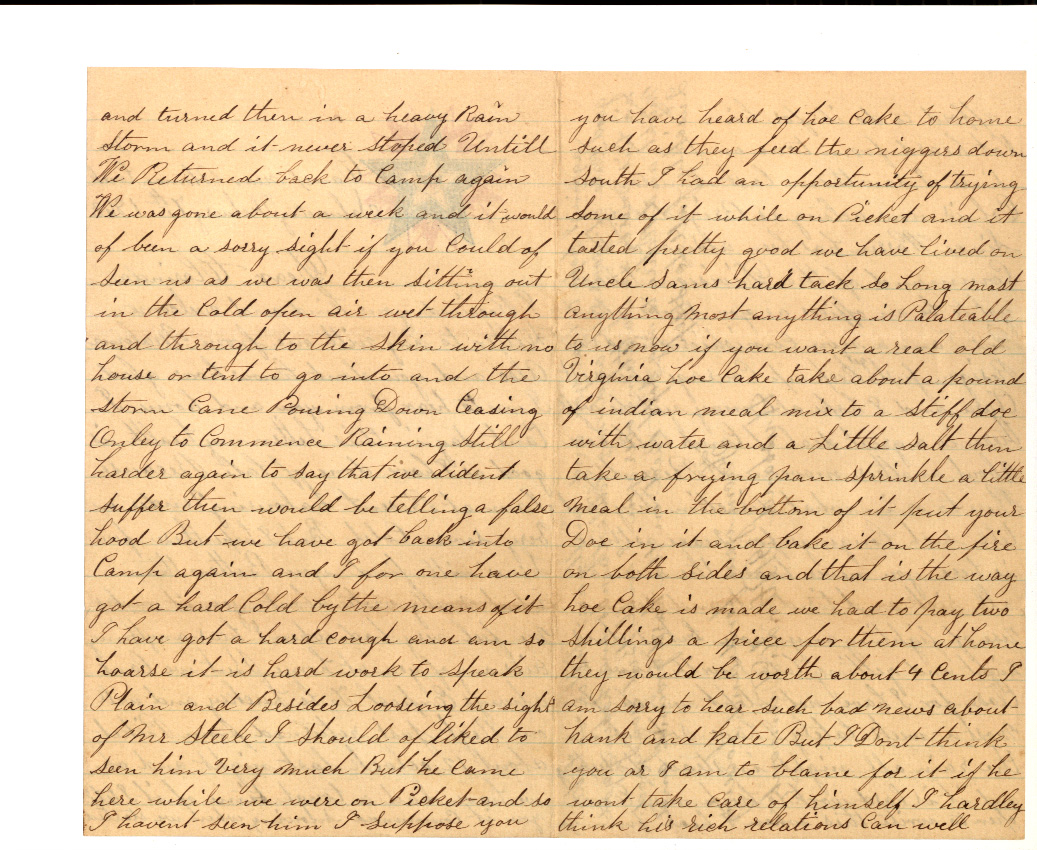 and turned then in a heavy Rain
Storm and it never stoped Untill
We Returned back to Camp again
We was gone about a week and it would
of been a sorry sight if you Could of
seen us as we was then sitting out
in the Cold open air wet through
and through to the skin with no
house or tent to go into and the
storm Cane Pouring Down Ceasing
Onley to Commence Raining Still
harder again to say that we dident
suffer then would be telling a false
hood But we have got back into
Camp again and I for one have
got a hard Cold by the means of it
I have got a hard cough and am so
hoarse it is hard work to speak
Plain and Besides Loosing the sight
of Mr Steele I should of liked to
seen him Very much But he Came
here while we were on Picket and so
I havent seen him I suppose you
you have heard of hoe Cake to home
such as they feed the niggers down
south I had an opportunity of trying
some of it while on Picket and it
tasted pretty good we have lived on
Uncle Sams hard tack so Long most
anything most anything is Palateable
to us now if you want a real old
Virginia hoe Cake take about a pound
of indian meal mix to a stiff doe
with water and a Little salt then
take a friзing pan sprinkle a little
meal in the bottom of it put your
Doe in it and bake it on the fire
on both sides and that is the way
hoe Cake is made we had to pay two
shillings a piece for them at home
they would be worth about 4 Cents I
am sorry to hear such bad news about
hank and kate But I Dont think
you or I am to blame for it if he
wont take Care of himself I hardley
think his rich relations Can well